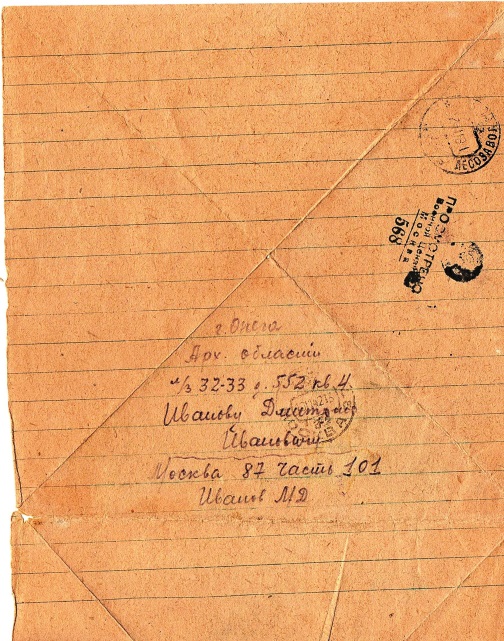 ЛЕСОЗАВОД
ПРОСМОТРЕНО
Военной Цензурой
МОСКВА
568
г. Онега
Арх. области
л/з 32-33 д. 552 кв. 4
Иванову Дмитрию
Ивановичу
МОСКВА
Москва 87 часть 101
Иванов МД